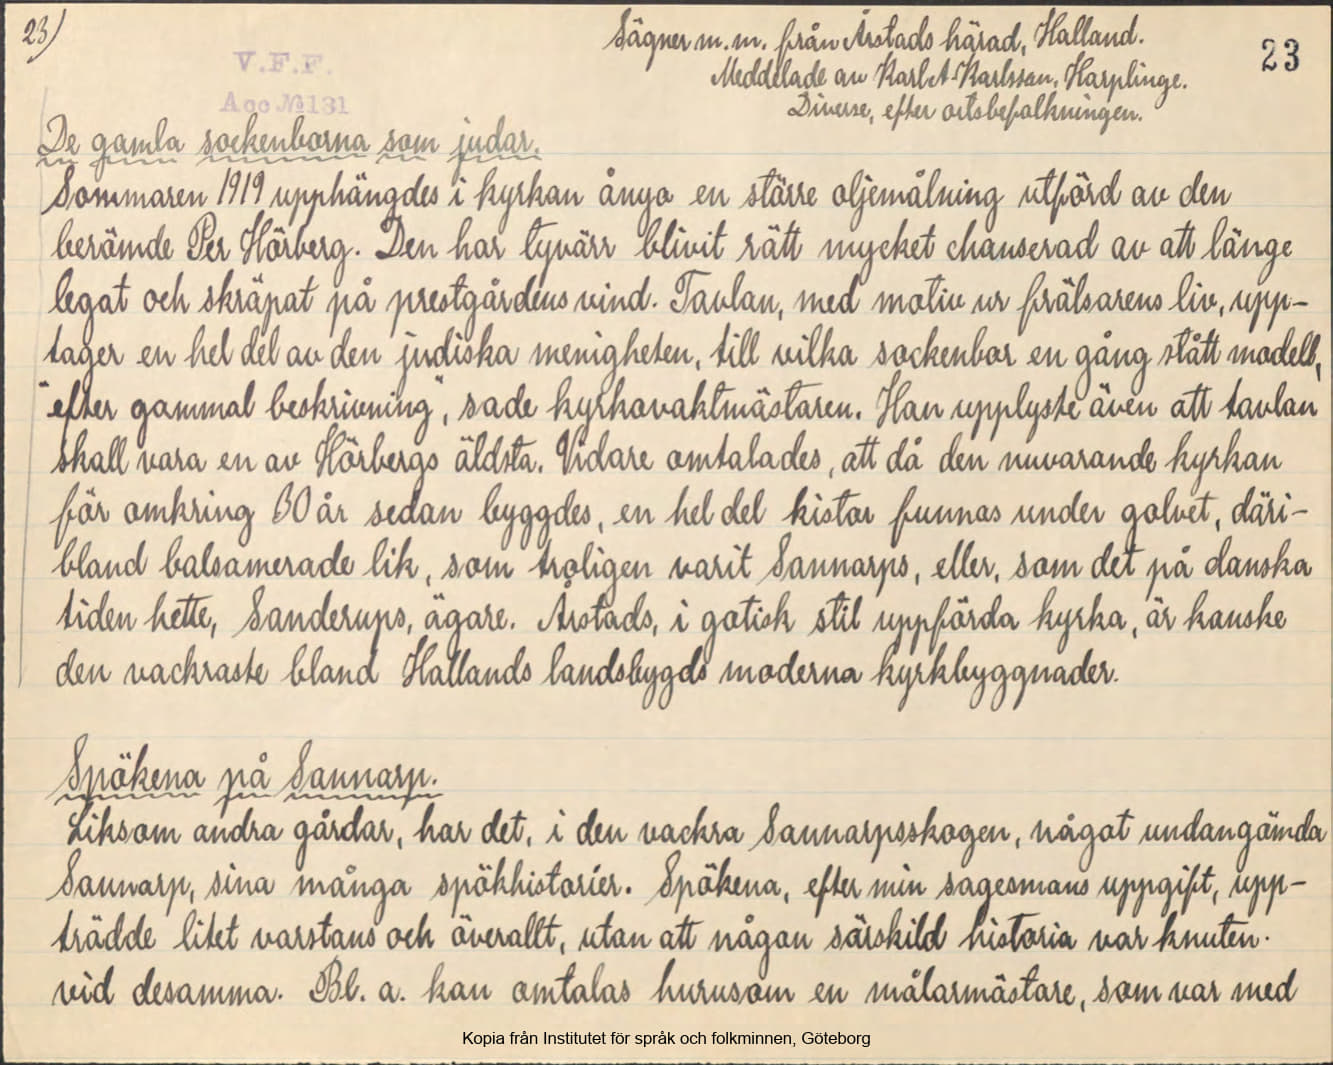 23)
Sägner m.m. från Årstads härad, Halland.
23
V.F.F.
Meddelade av Karl A Karlsson, Harplinge.
Acc № 131
Diverse, efter ortsbefolkningen.
De gamla sockenborna som judar.
Sommaren 1919 upphängdes i kyrkan ånyo en större oljemålning utförd av den
berömde Per Hörberg. Den har tyvärr blivit rätt mycket chanserad av att länge
legat och skräpat på prestgårdens vind. Tavlan, med motiv ur frälsarens liv, upp-
tager en hel del av den judiska menigheten, till vilka sockenbor en gång stått modell,
"efter gammal beskrivning", sade kyrkovaktmästaren. Han upplyste även att tavlan
skall vara en av Hörbergs äldsta. Vidare omtalades, att då den nuvarande kyrkan
för omkring 30 år sedan byggdes, en hel del kistor funnos under golvet, däri-
bland balsamerade lik, som troligen varit Sannarps, eller, som det på danska
tiden hette, Sanderups, ägare. Årstads, i gotisk stil uppförda kyrka, är kanske
den vackraste bland Hallands landsbygds moderna kyrkbyggnader.
Spökena på Sannarp.
Liksom andra gårdar, har det, i den vackra Sannarpsskogen, något undangömda
Sannarp, sina många spökhistorier. Spökena, efter min sagesmans uppgift, upp-
trädde litet varstans och överallt, utan att någon särskild historia var knuten
vid desamma. Bl. a. kan omtalas hurusom en målarmästare, som var med
Kopia från Institutet för språk och folkminnen, Göteborg